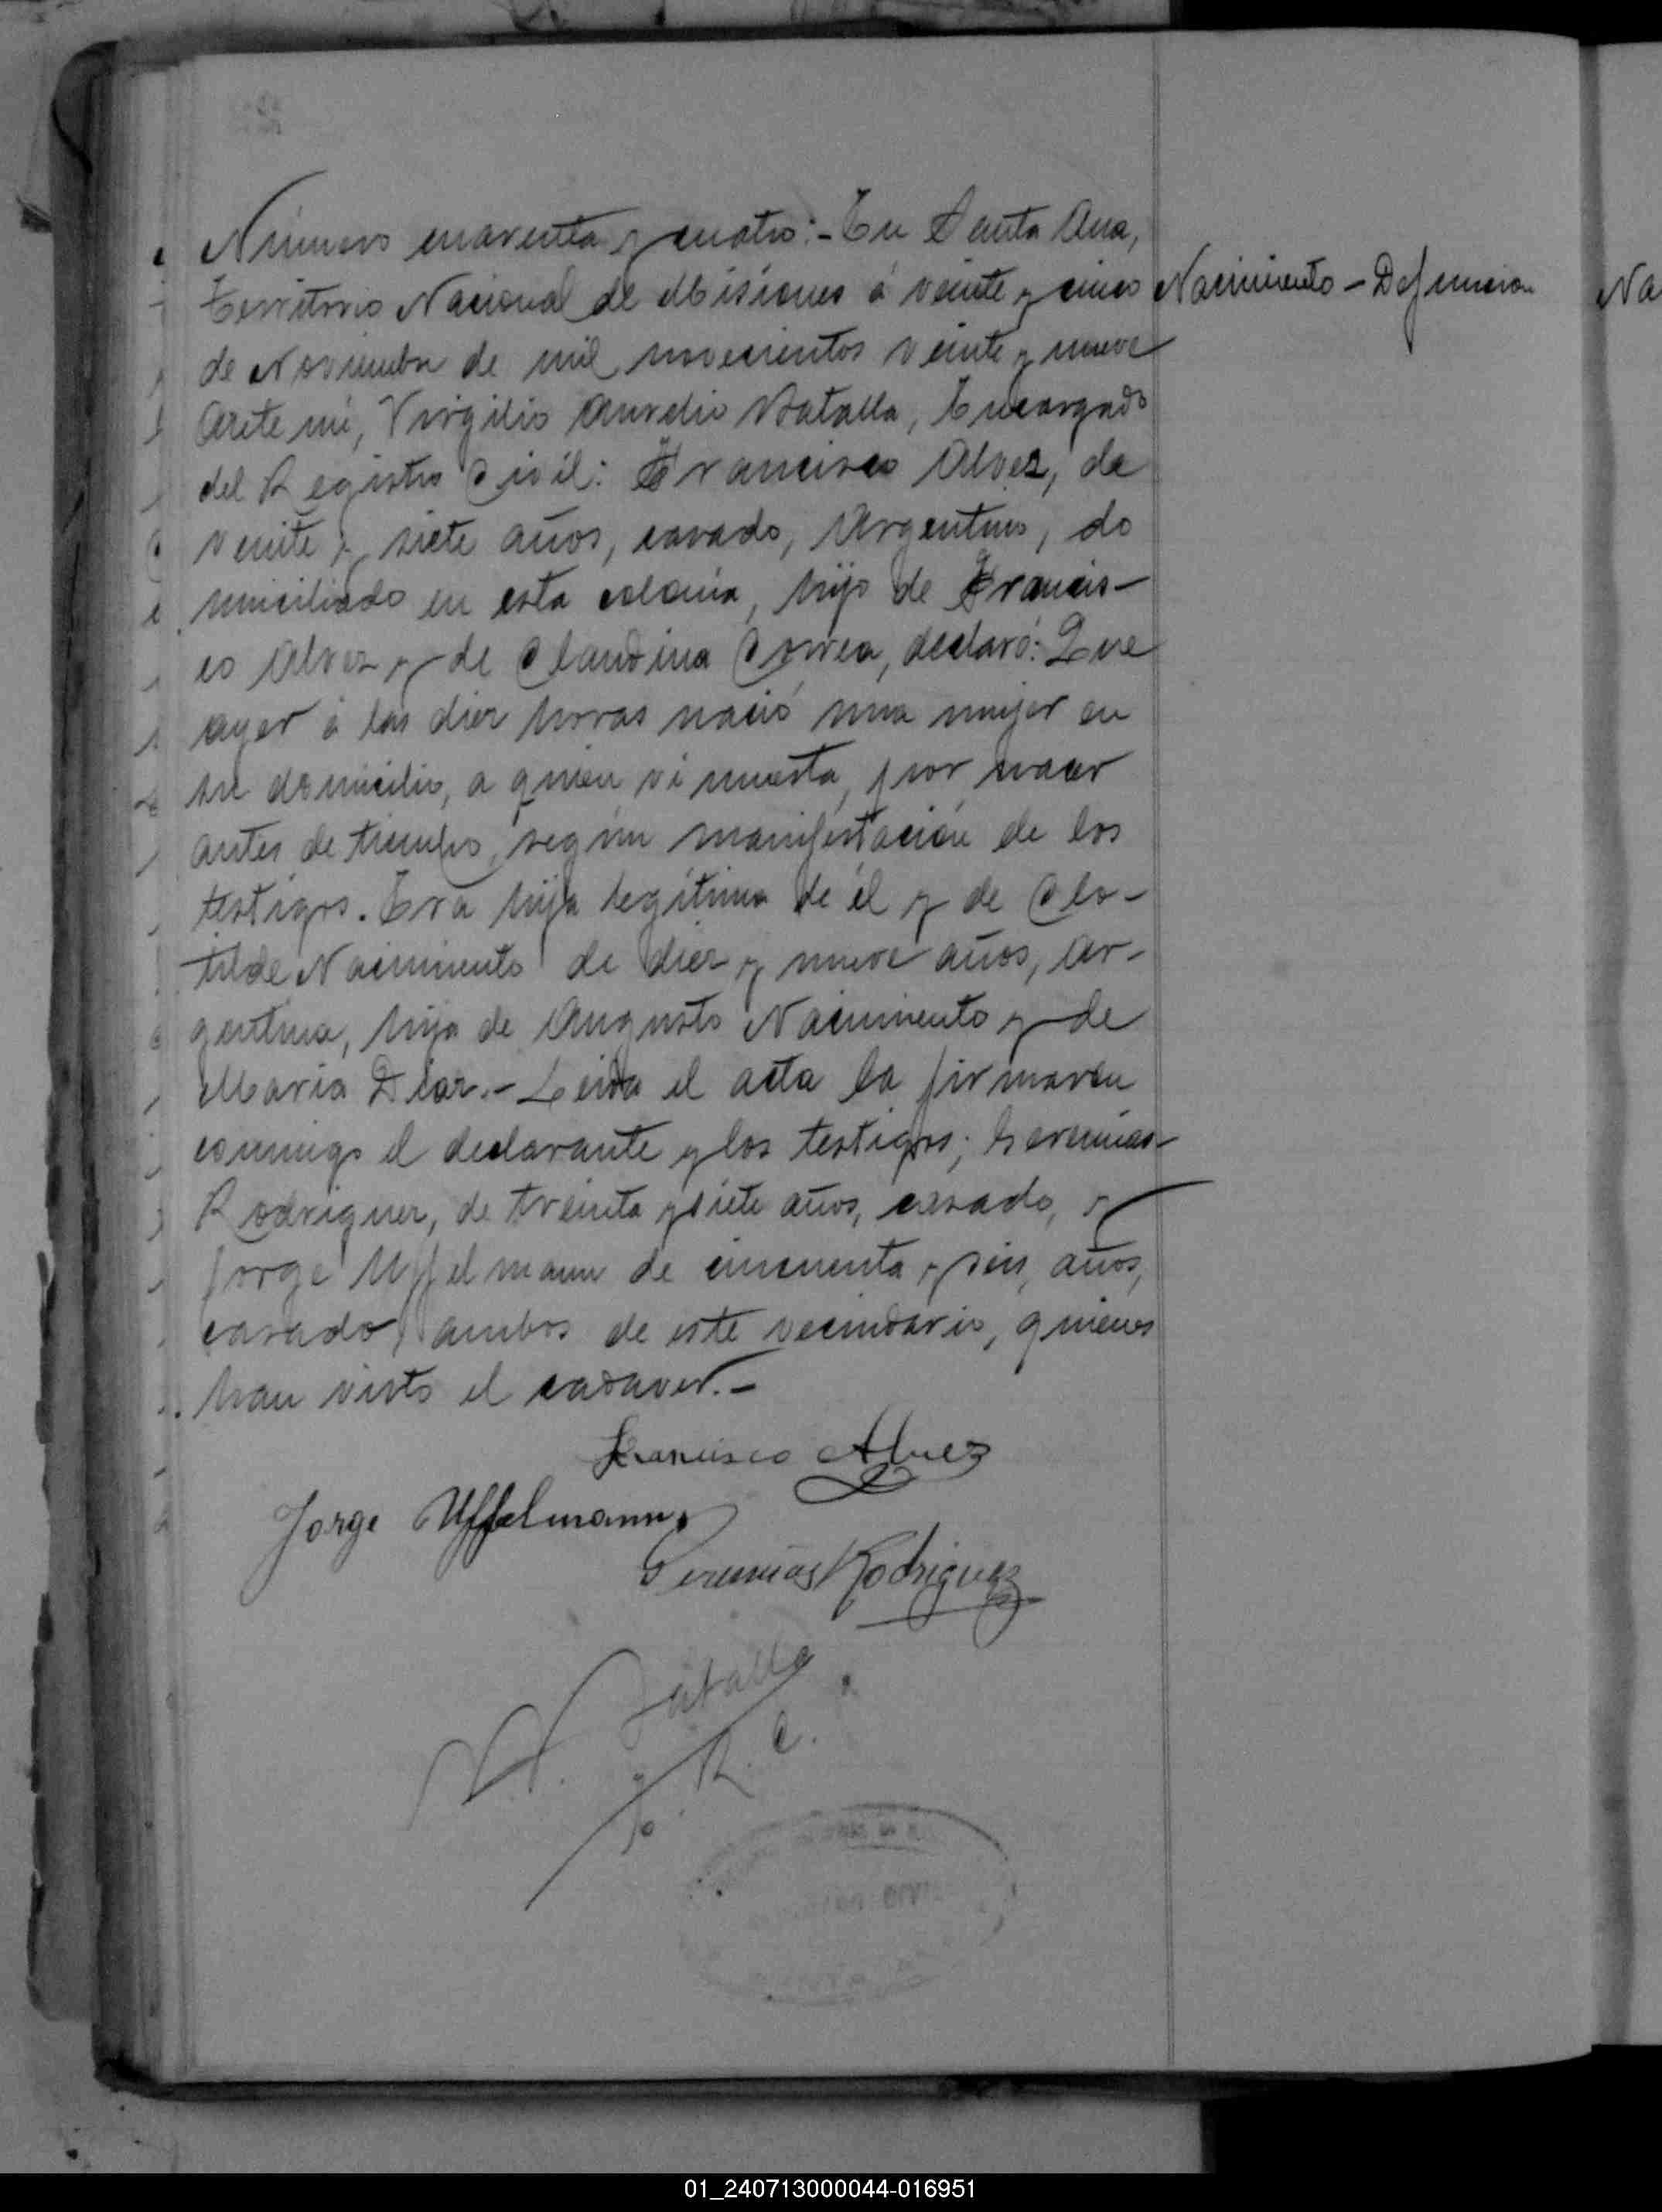 Número cuarenta y cuatro:- En Santa Ana,
Territorio Nacional de Misiones á veinte y cinco
Nacimiento - Defuncion
Na
de Noviembre de mil novecientos veinte y nueve
Ante mi, Virgilio Aurelio Batalla, Encargado
del Registro Civil: Francisco Alvez, de
veinte y siete años, casado, Argentino, do
miciliado en esta colonia, hijo de Francis-
co Alvez y de Claudina Correa, declaró: Que
ayer á las diez horas nació una mujer en
su domicilio, a quien vi muerta, por nacer
antes de tiempo, según manifestación de los
testigos. Era hija legítima de él y de Clo-
tilde Nacimiento de diez y nueve años, Ar-
gentina, hija de Augusto Nacimiento y de
Maria Diaz.- Leida el acta la firmaron
conmigo el declarante y los testigos; Geremias
Rodriguez, de treinta y siete años, casado, y
Jorge Uffelmann de cincuenta y seis, años,
casado, ambos de este vecindario, quienes
han visto el cadaver.-
Francisco Alvez
Jorge Uffelmann
Geremias Rodriguez
V. A. Batalla
R. C.
01_240713000044-016951